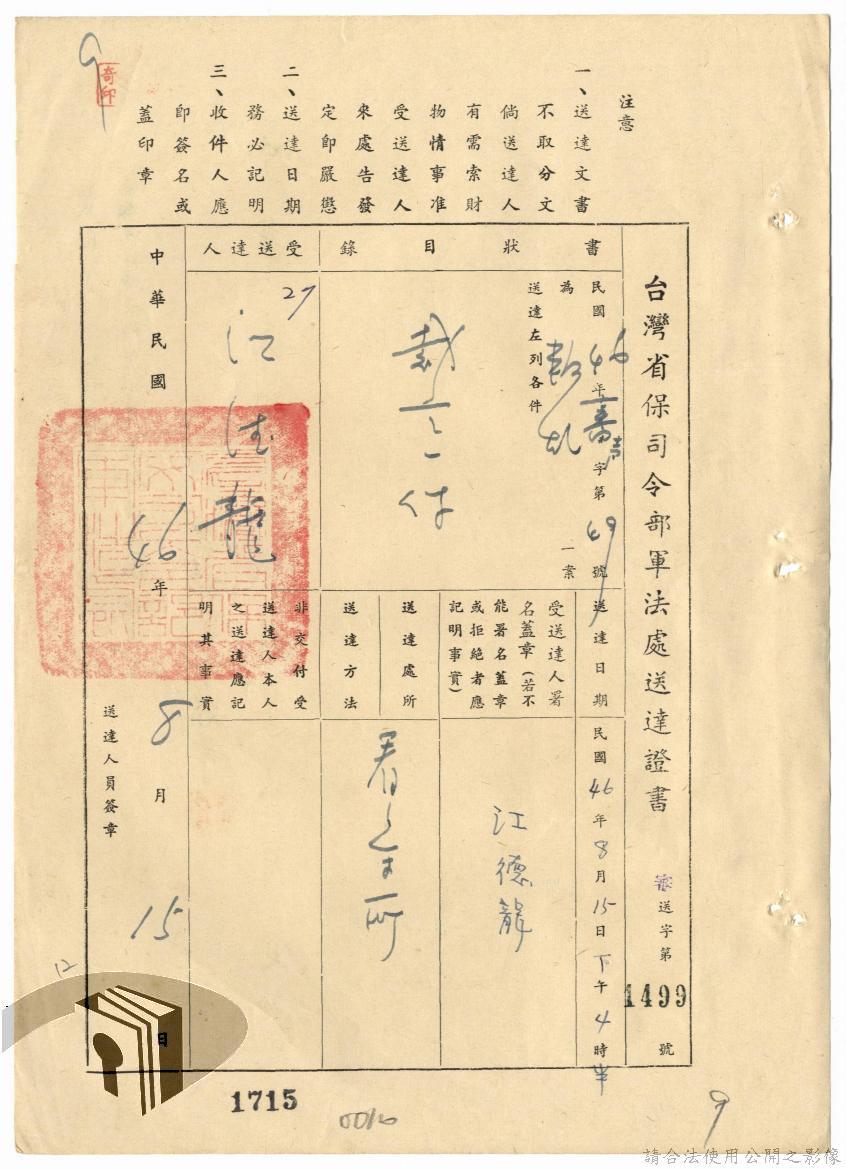 注意
一、送達文書
不取分文
倘送達人
有需索財
物情事准
受送達人
來處告發
定即嚴懲
二、送達日期
務必記明
三、收件人應
即簽名或
蓋印章
奇印
9
台灣省保司令部軍法處送達證書
送字第
1499
號
書狀目錄
受送達人
民國46年審字第49號
為叛亂一案
送達左列各件
裁定一件
27
江德龍
送達日期
民國46年8月15日下午4時半
受送達人署
名蓋章(若不
能署名蓋章
或拒絕者應
記明事實)
江德龍
送達處所
送達方法
看守所
非交付受
送達人本人
之送達應記
明其事實
中華民國46年8月15日
送達人員簽章
12
1715
9
請合法使用公開之影像